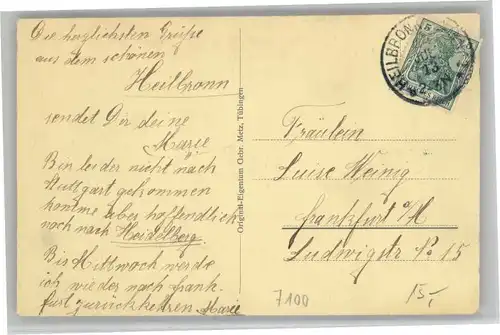 Die herzlichsten Grüße
aus dem schönen
Heilbronn
sendet Dir deine
Marie
Bin leider nicht nach
Stuttgart gekommen
komme aber hoffendlich
noch nach Heidelberg.
Bis Mittwoch werde
ich wieder nach Frank-
furt zurückkehren. Marie
Original-Eigentum Gebr. Metz, Tübingen
HEILBRONN
5
Fräulein
Luise Weinig
Frankfurt a/M
Ludwigstr No 15
7100
15,-